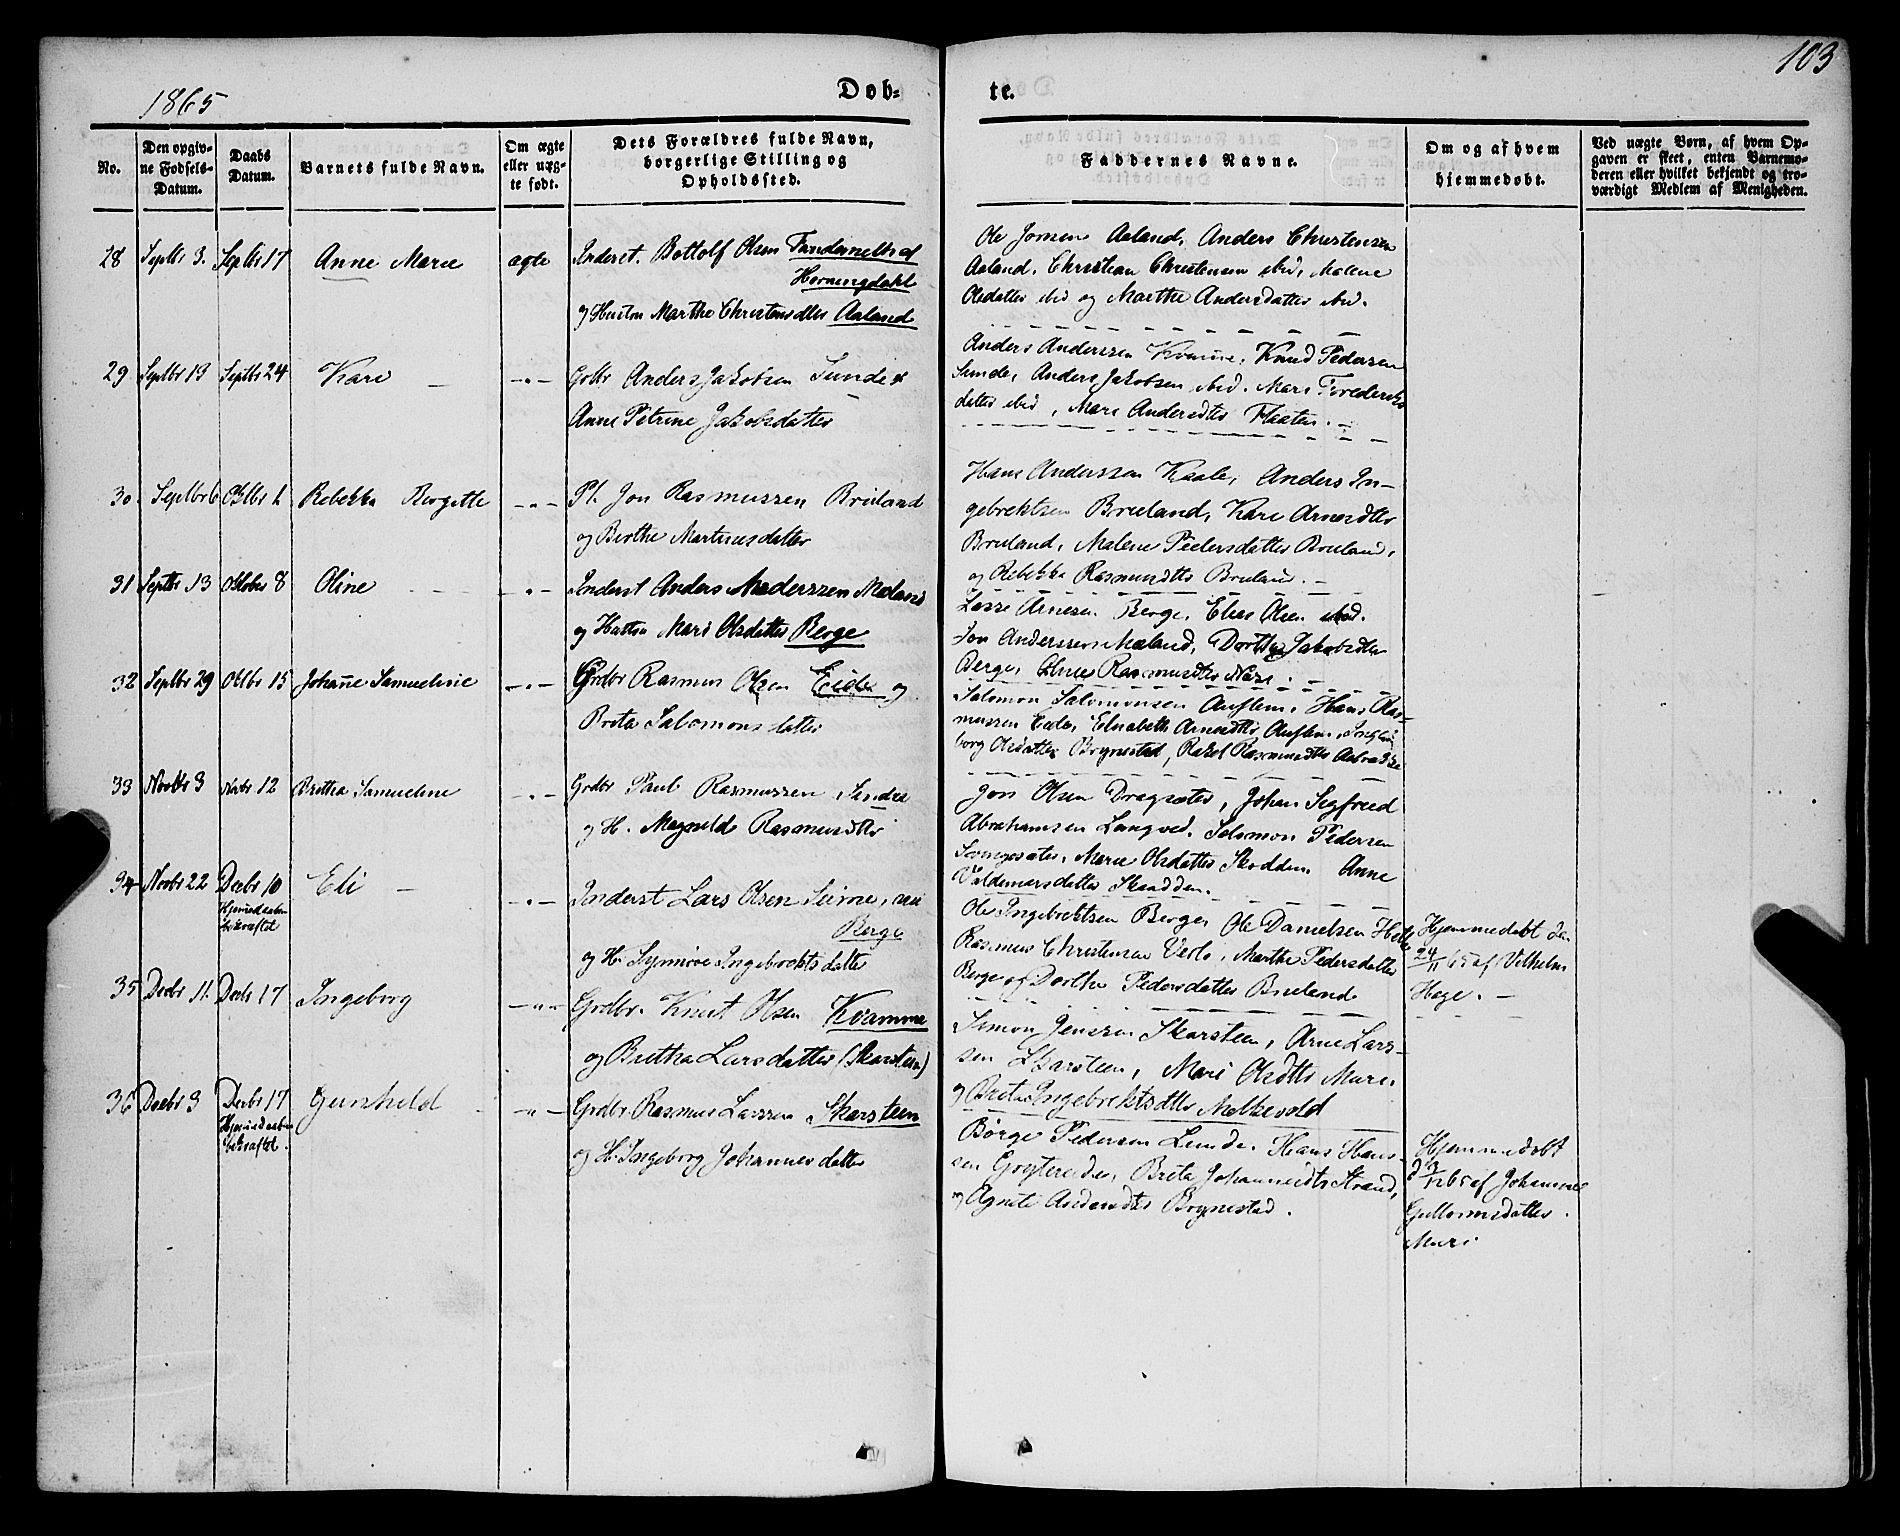 103
1865
Døb-
te.
No.
Den opgiv-
ne Fødsels-
Datum.
Daabs
Datum.
Barnets fulde Navn.
Om ægte
eller uæg-
te født.
Dets Forældres fulde Navn,
borgerlige Stilling og
Opholdssted.
Faddernes Navne.
Om og af hvem
hjemmedøbt.
Ved uægte Børn, af hvem Op-
gaven er skeet, enten Barnemo-
deren eller hvilket bekjendt og tro-
værdigt Medlem af Menigheden.
28 Septbr 3. Septbr 17 Anne Marie ægte
Inderst. Bottolf Olsen
Horningdahl
og Hustru Marthe Christensdtter Aaland
Ole Jonsen Aaland, Anders Christensen
Aaland, Christian Christensen ibid, Malene
Olsdatter ibid og Marthe Andersdatter ibid.
29 Septbr 13 Septbr 24 Kari — -"-
Grdbr Anders Jakobsen Sunde &
Anne Petrine Jakobsdatter
Anders Anderssen Kvame, Knud Pedersen
Sunde, Anders Jakobsen ibid. Mari Frederiks
datter ibid, Mari Andersdtter Flaaten. —
30. Septbr 6 Oktbr 1 Rebekka Bergitte -"-
Pl. Jon Rasmussen Bruland
og Berthe Martinusdatter
Hans Anderssen Kaale, Anders In-
gebrektsen Bruland, Kari Arnesdtter
Bruland, Malene Pedersdatter Bruland,
og Rebekka Rasmusdtter Bruland. —
31 Septbr 13 Oktober 8 Oline -"-
Inderst Anders Anderssen Mæland
og Hustru Mari Olsdatter Berge
Lasse Arnesen Berge, Elias Olsen ibid.
Jon Anderssen Mæland, Dorthe Jakobsdtter
Berge, Rasmusdtter
32 Septbr 29 Oktbr 15 Johanne Samueline -"-
Grdbr Rasmus Olsen Eide og
Brita Salomonsdatter
Salomon Salomonsen Auflem, Hans Ras-
mussen Eide, Elisabeth Arnesdtter Auflem, Inge-
borg Olsdatter Brynestad, Rakel Rasmusdtter
33 Novbr 3 Novbr 12 Brithe Samueline -"-
Grdbr Paul Rasmussen Sindre
og H. Magnild Rasmusdtter
Jon Olsen Dragsæter, Johan Sigfred
Abrahamsen Langved, Solomon Pedersen
Marie Olsdatter Skodden Anne
Valdemarsdatter Skaadden.
34 Novbr 22 Decbr 10 Eli — -"-
Hjemmedaaben
bekræftet
Inderst Lars Olsen Seime, nu
Berge
og H. Synnøve Ingebrektsdatter
Ole Ingebrektsen Berge, Ole Danielsen
Rasmus Christensen Verlo, Marthe Pedersdatter
Berge og Dorthe Pedersdatter Bruland
Hjemmedøbt den
24/11 65 af Vilhelm
Hage. —
35 Decbr 11. Decbr 17 Ingeborg -"-
Grdbr. Knut Olsen Kvamme
og Britha Larsdatter (Skarsteen)
Simon Jenssen Skarsteen, Arne Lars-
sen Skarsteen, Mari Olsdtter Muri
og Brita Ingebrektsdtter Melkevold
36 Decbr 3 Decbr 17 Gunhild -"-
Hjemmedaaben
bekræftet.
Grdbr. Rasmus Larssen Skarsteen
og H. Ingeborg Johannesdatter
Børge Pedersen Lunde, Hans Hans-
sen Grytereide, Brita Johannesdtr Strand,
og Agnete Andersdtter Brynestad.
Hjemmedøbt
af Johanne
Guttormsdatter
Muri